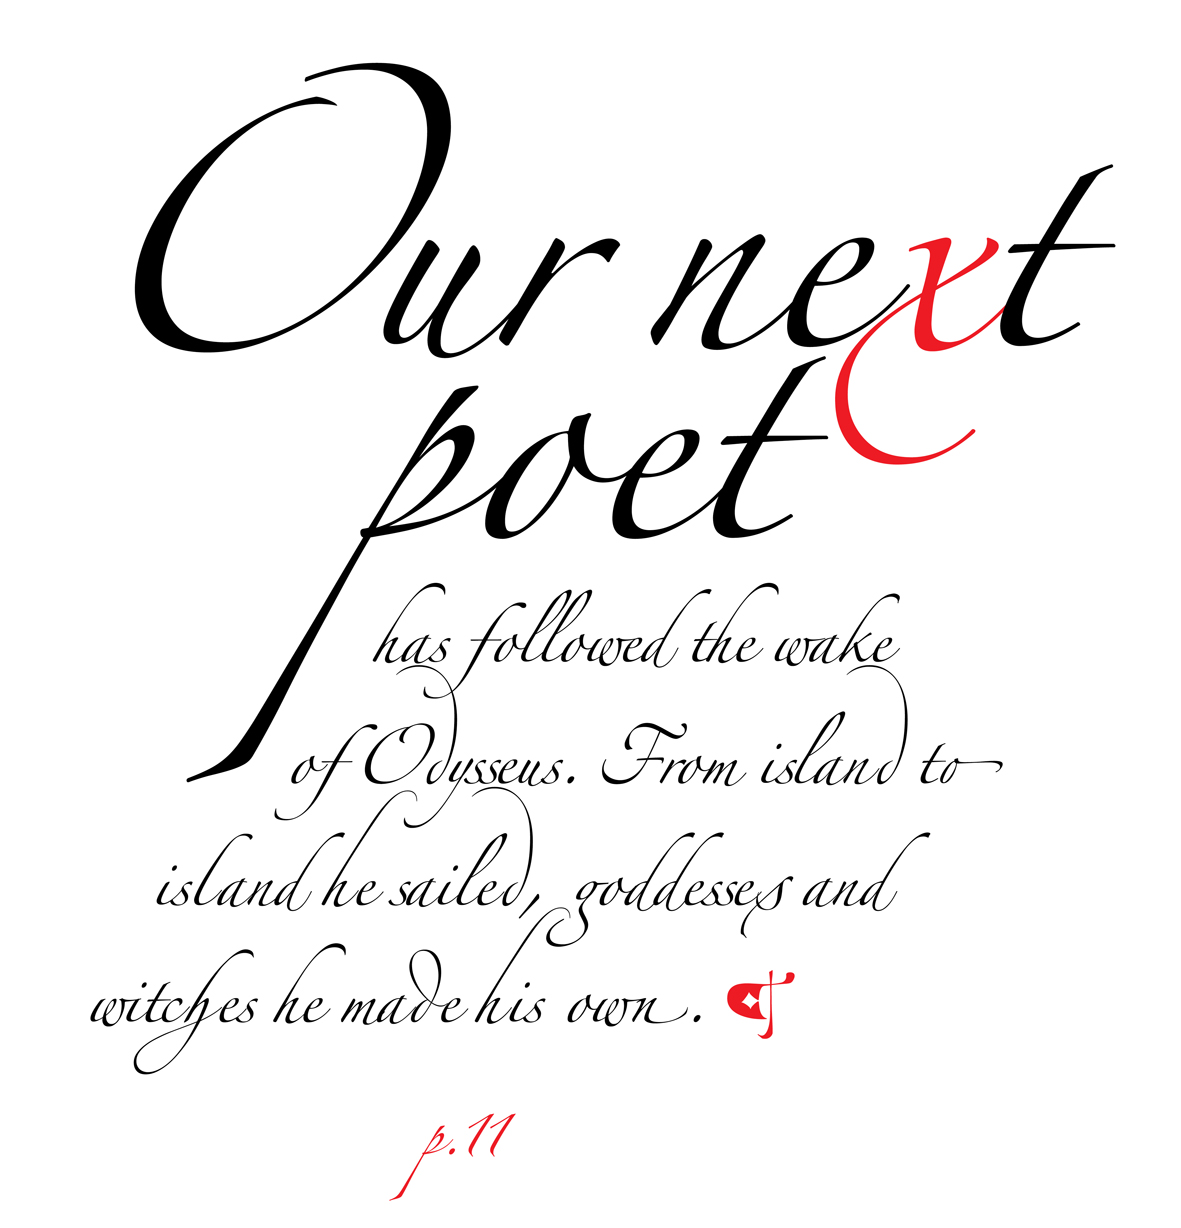 Our next
poet
has followed the wake
of Odysseus. From island to
island he sailed, goddesses and
witches he made his own. ¶
p.11